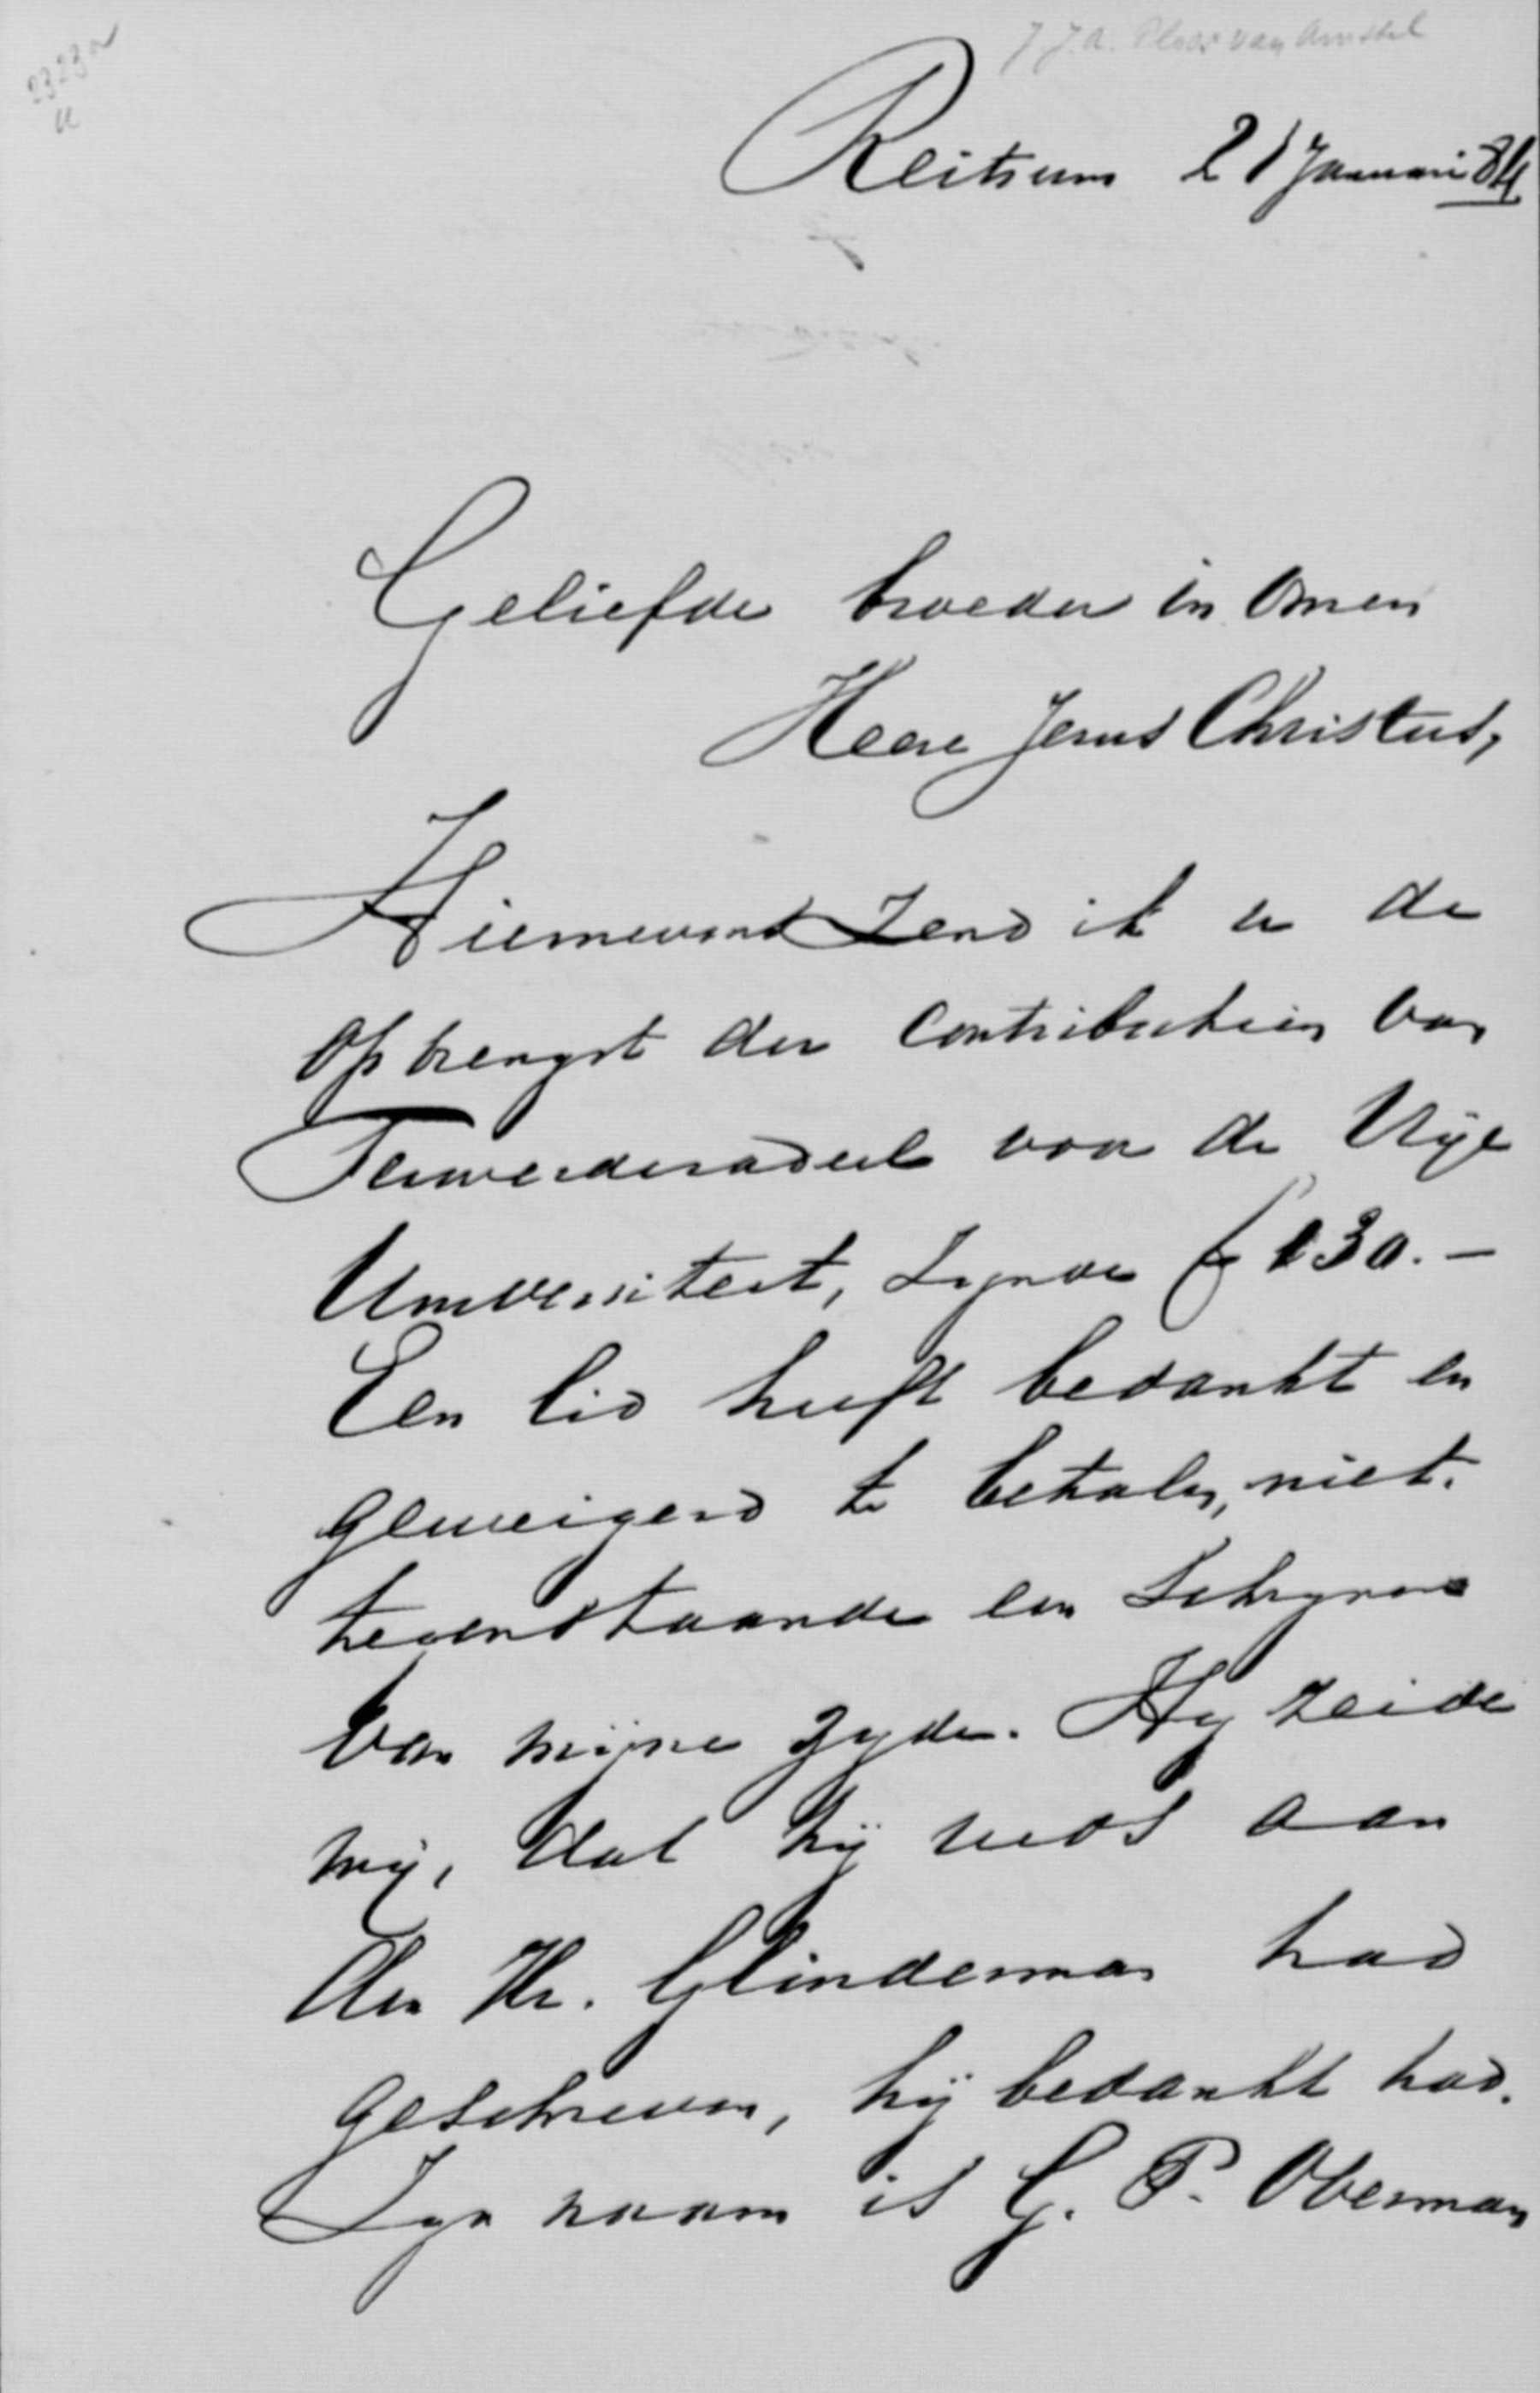 J. J. A. Ploos van Amstel
2323a
Reitsum 21 Januari 84
Geliefde broeder in Onzen
Heere Jezus Christus,
Hiernevens zend ik u de
opbrengst der contributiën van
Ferwerderadeel voor de Vrije
Universiteit, zynde f 130.-
Een lid heeft bedankt en
geweigerd te betalen, niet-
tegenstaande een schryven
van mijne zyde. Hy zeide
mij, dat hij reeds aan
den Hr. Glinderman had
geschreven, hij bedankt had.
Zyn naam is G. P. Oberman